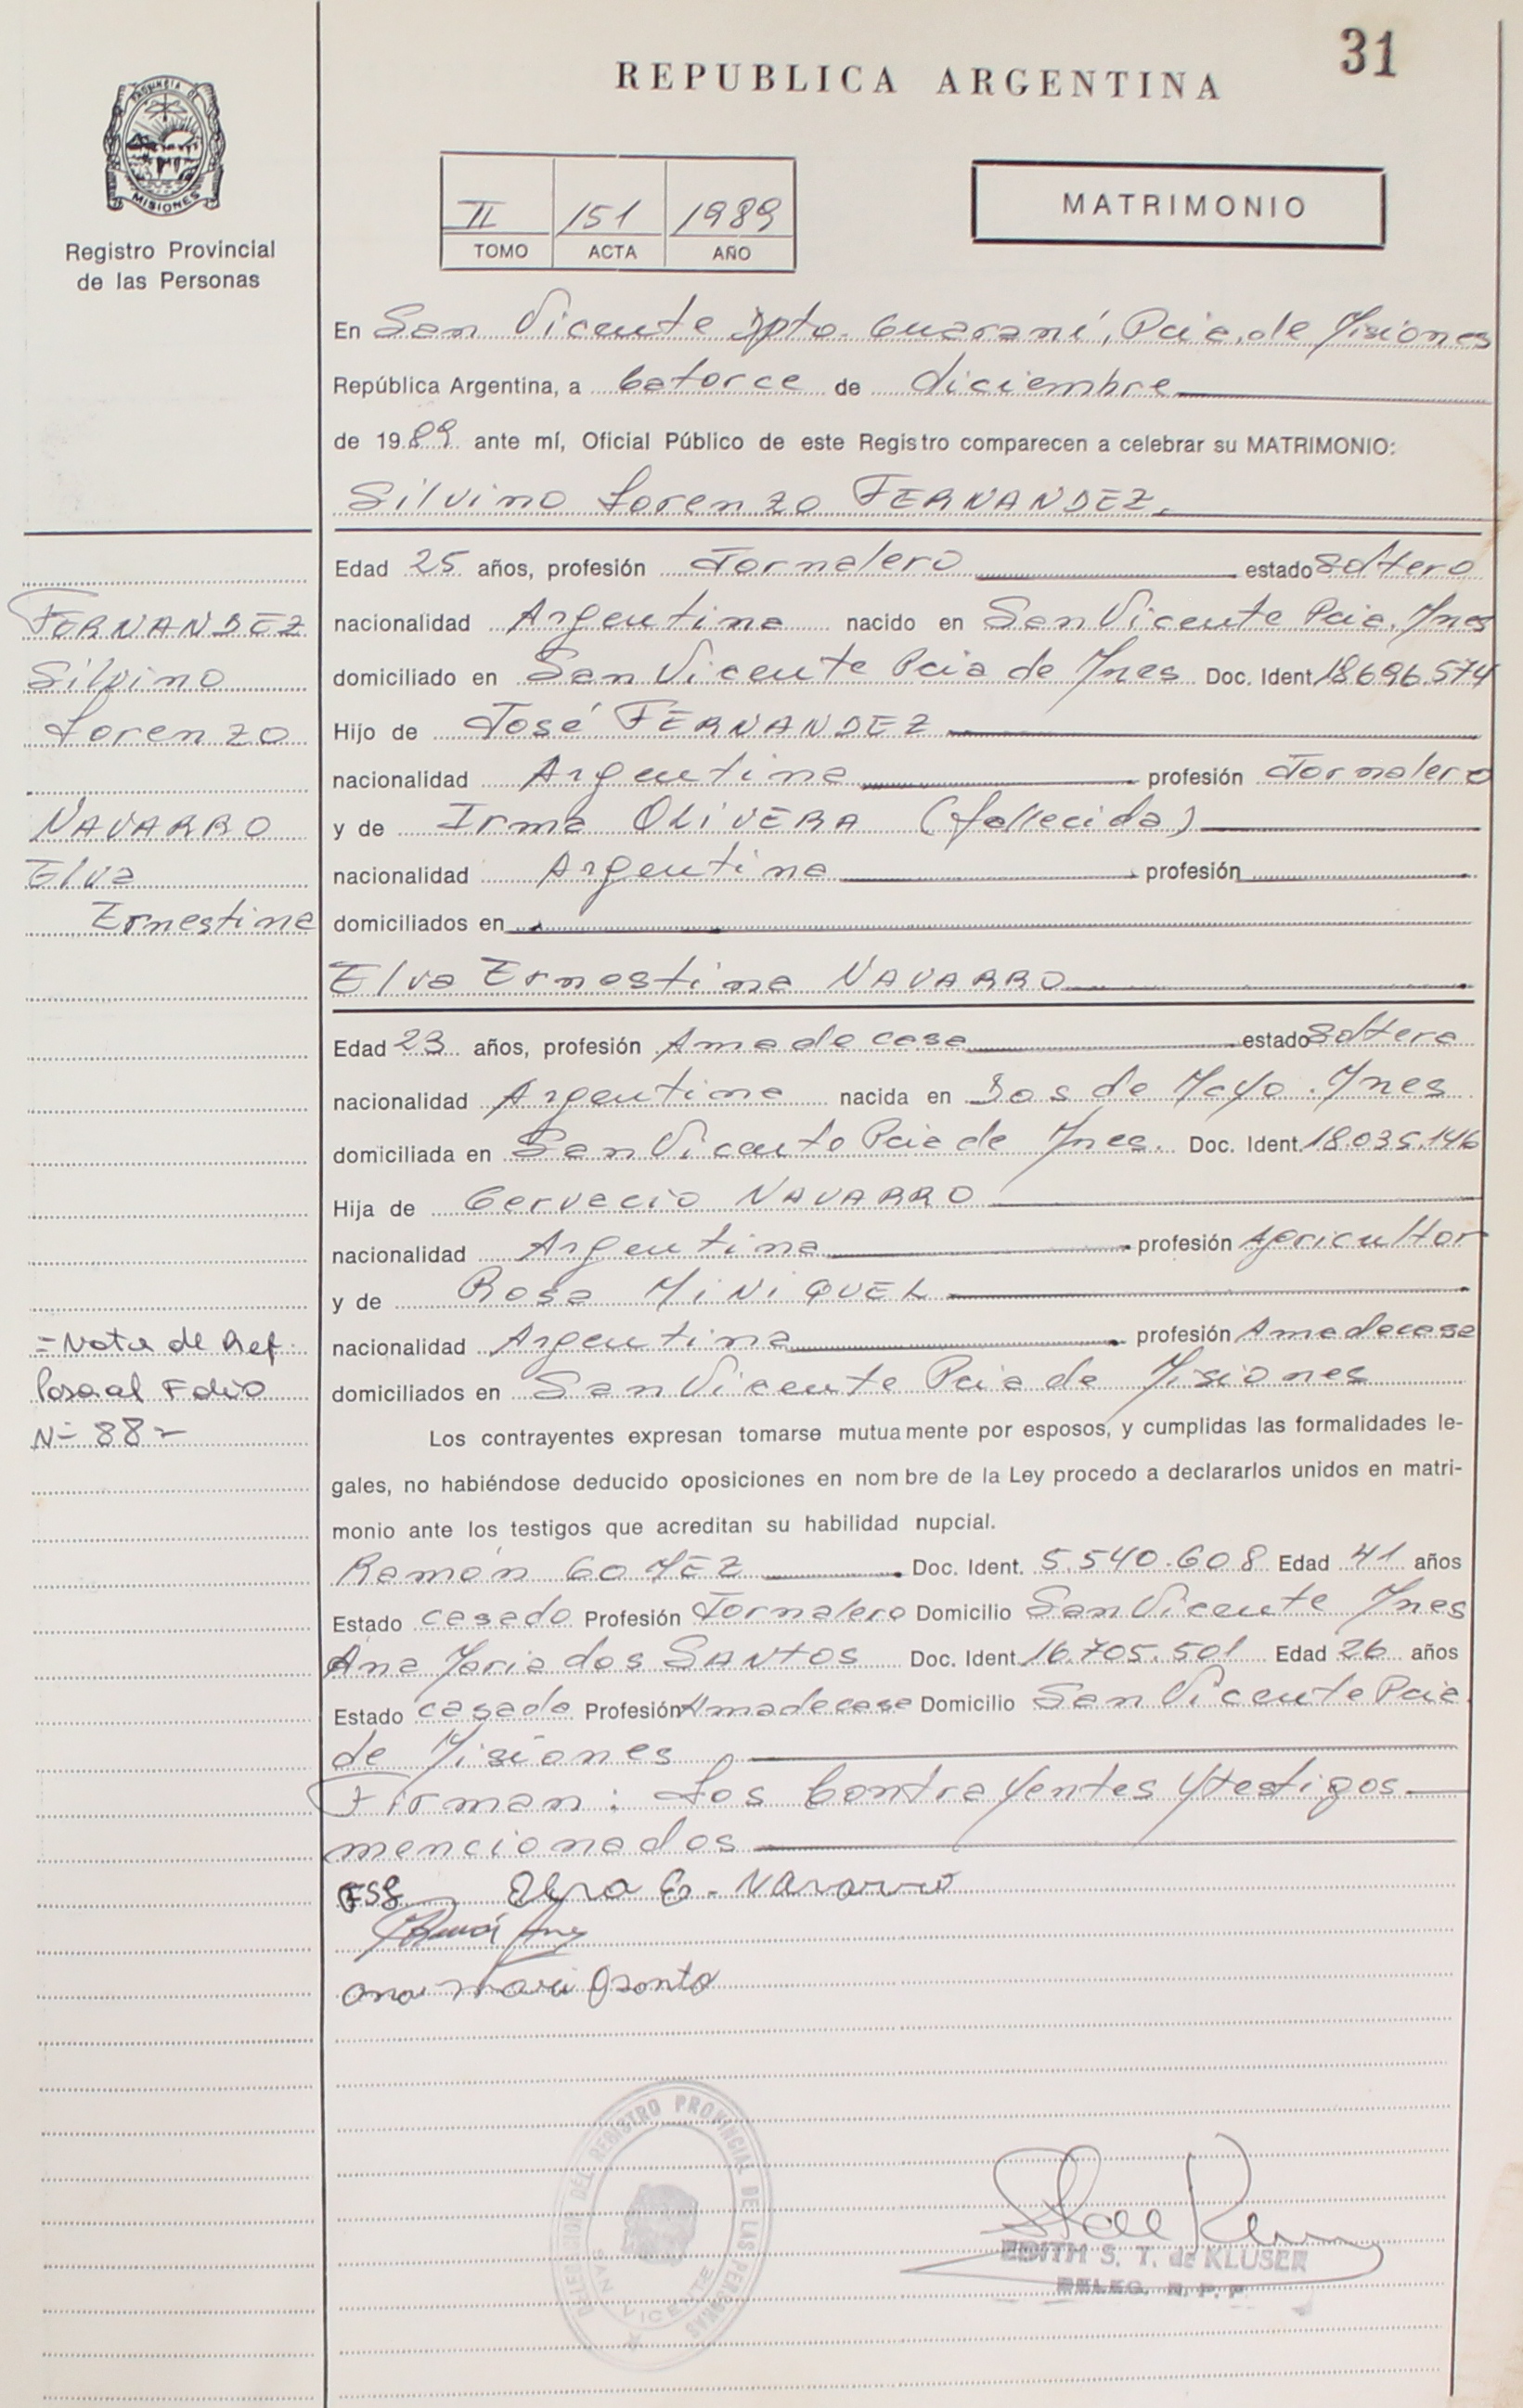 31
REPUBLICA ARGENTINA
PROVINCIA DE
MISIONES
Registro Provincial
de las Personas
II 151 1989
TOMO ACTA AÑO
MATRIMONIO
En San Vicente Dpto. Guaraní, Pcia. de Misiones
República Argentina, a Catorce de diciembre
de 1989 ante mí, Oficial Público de este Registro comparecen a celebrar su MATRIMONIO:
Silvino Lorenzo FERNANDEZ.
Edad 25 años, profesión Jornalero estado Soltero
nacionalidad Argentina nacido en San Vicente Pcia. Mnes
domiciliado en San Vicente Pcia de Mnes Doc. Ident. 18.696.574
Hijo de José FERNANDEZ
nacionalidad Argentina profesión Jornalero
y de Irma OLIVERA (fallecida)
nacionalidad Argentina profesión
domiciliados en
Elva Ernestina NAVARRO
Edad 23 años, profesión Ama de casa estado Soltera
nacionalidad Argentina nacida en Dos de Mayo. Mnes
domiciliada en San Vicente Pcia de Mnes. Doc. Ident. 18.035.146
Hija de Cervacio NAVARRO
nacionalidad Argentina profesión Agricultor
y de Rosa MINIQUEL
nacionalidad Argentina profesión Ama de casa
domiciliados en San Vicente Pcia de Misiones
Los contrayentes expresan tomarse mutuamente por esposos, y cumplidas las formalidades le-
gales, no habiéndose deducido oposiciones en nombre de la Ley procedo a declararlos unidos en matri-
monio ante los testigos que acreditan su habilidad nupcial.
Ramón GOMEZ Doc. Ident. 5.540.608 Edad 41 años
Estado casado Profesión Jornalero Domicilio San Vicente Mnes
Ana Maria dos SANTOS Doc. Ident. 16.705.501 Edad 26 años
Estado casada Profesión Ama de casa Domicilio San Vicente Pcia
de Misiones
Firman: Los Contrayentes y testigos
mencionados
FSL Elva E. Navarro
FERNANDEZ
Silvino
Lorenzo
NAVARRO
Elva
Ernestina
=Nota de Ref.
Pasa al Folio
Nº 88-
DELEGACION DEL REGISTRO PROVINCIAL DE LAS PERSONAS
SAN VICENTE
EDITH S. T. de KLUSER
DELEG. R. P. P.